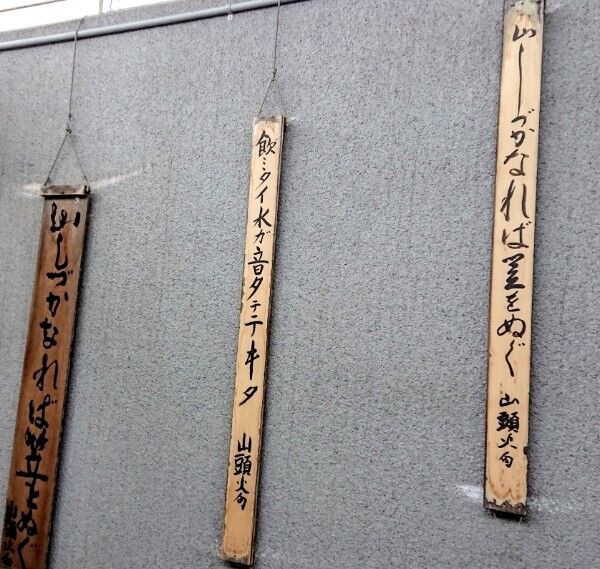 山しづかなれば笠をぬぐ
山頭火句
飲ミタイ水ガ音タテテヰタ
山頭火句
山しづかなれば笠をぬぐ
山頭火句